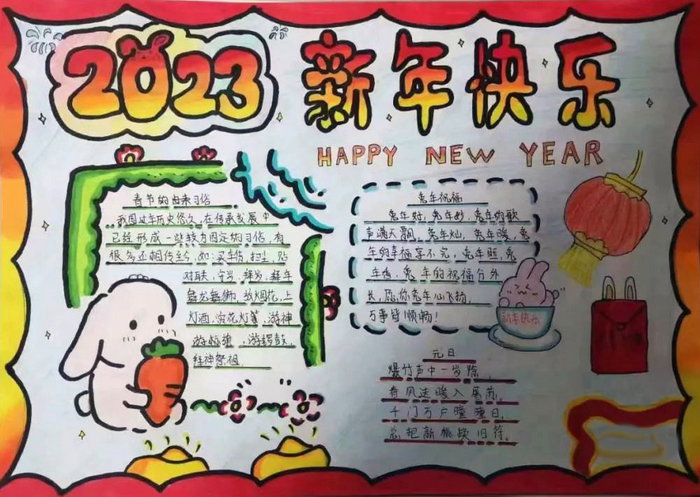 2023 新年快乐
HAPPY NEW YEAR
春节的由来习俗
我国过年历史悠久,在传承发展中
已经形成一些较为固定的习俗,有
很多还相传至今,如买年货、扫尘、贴
对联、守岁、拜岁、拜年
舞龙舞狮、放烟花、上
灯酒、赏花灯等、游神
游锣鼓
拜神祭祖
兔年祝福
兔年好,兔年妙,兔年的歌
声满天飘,兔年灿,兔年暖,兔
年的幸福享不完,兔年旺,兔
年
兔年的祝福分外
长,愿你兔年心飞扬
万事皆顺畅!
新年快乐
元日
爆竹声中一岁除,
春风送暖入屠苏,
千门万户曈曈日,
总把新桃换旧符。